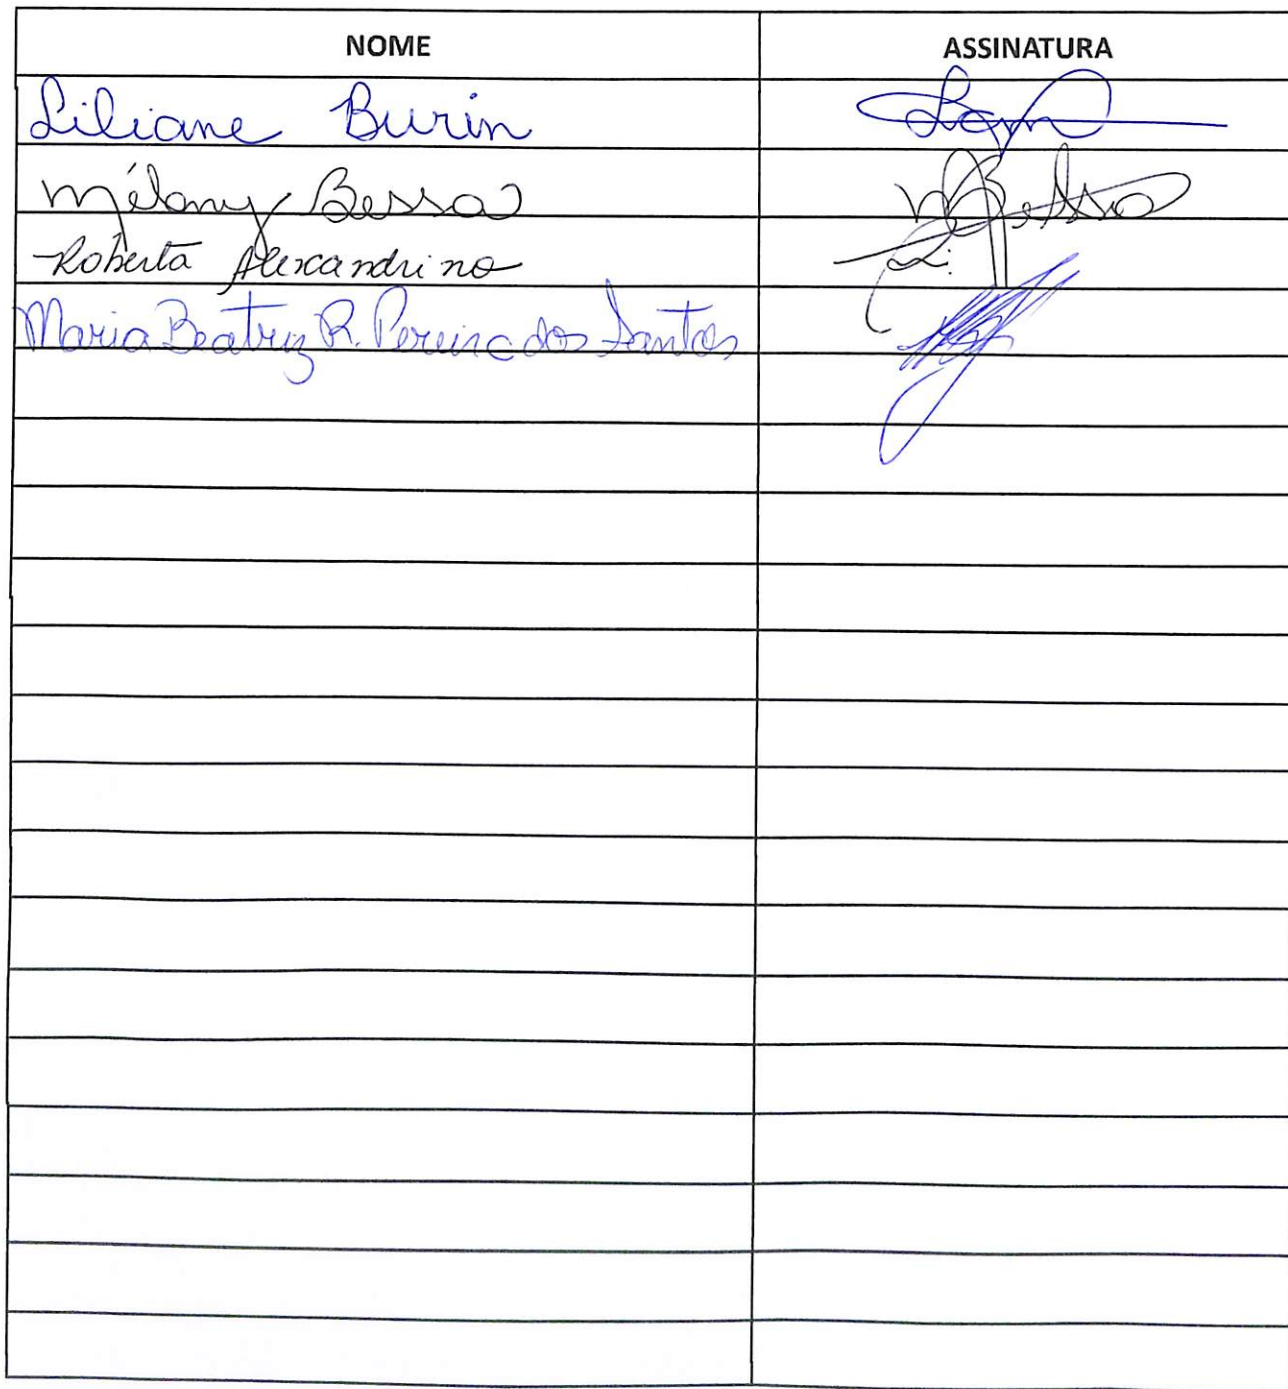 NOME ASSINATURA
Liliane Burin
Mélany Bessa
Roberta Alexandrino
Maria Beatriz R. Pereira dos Santos